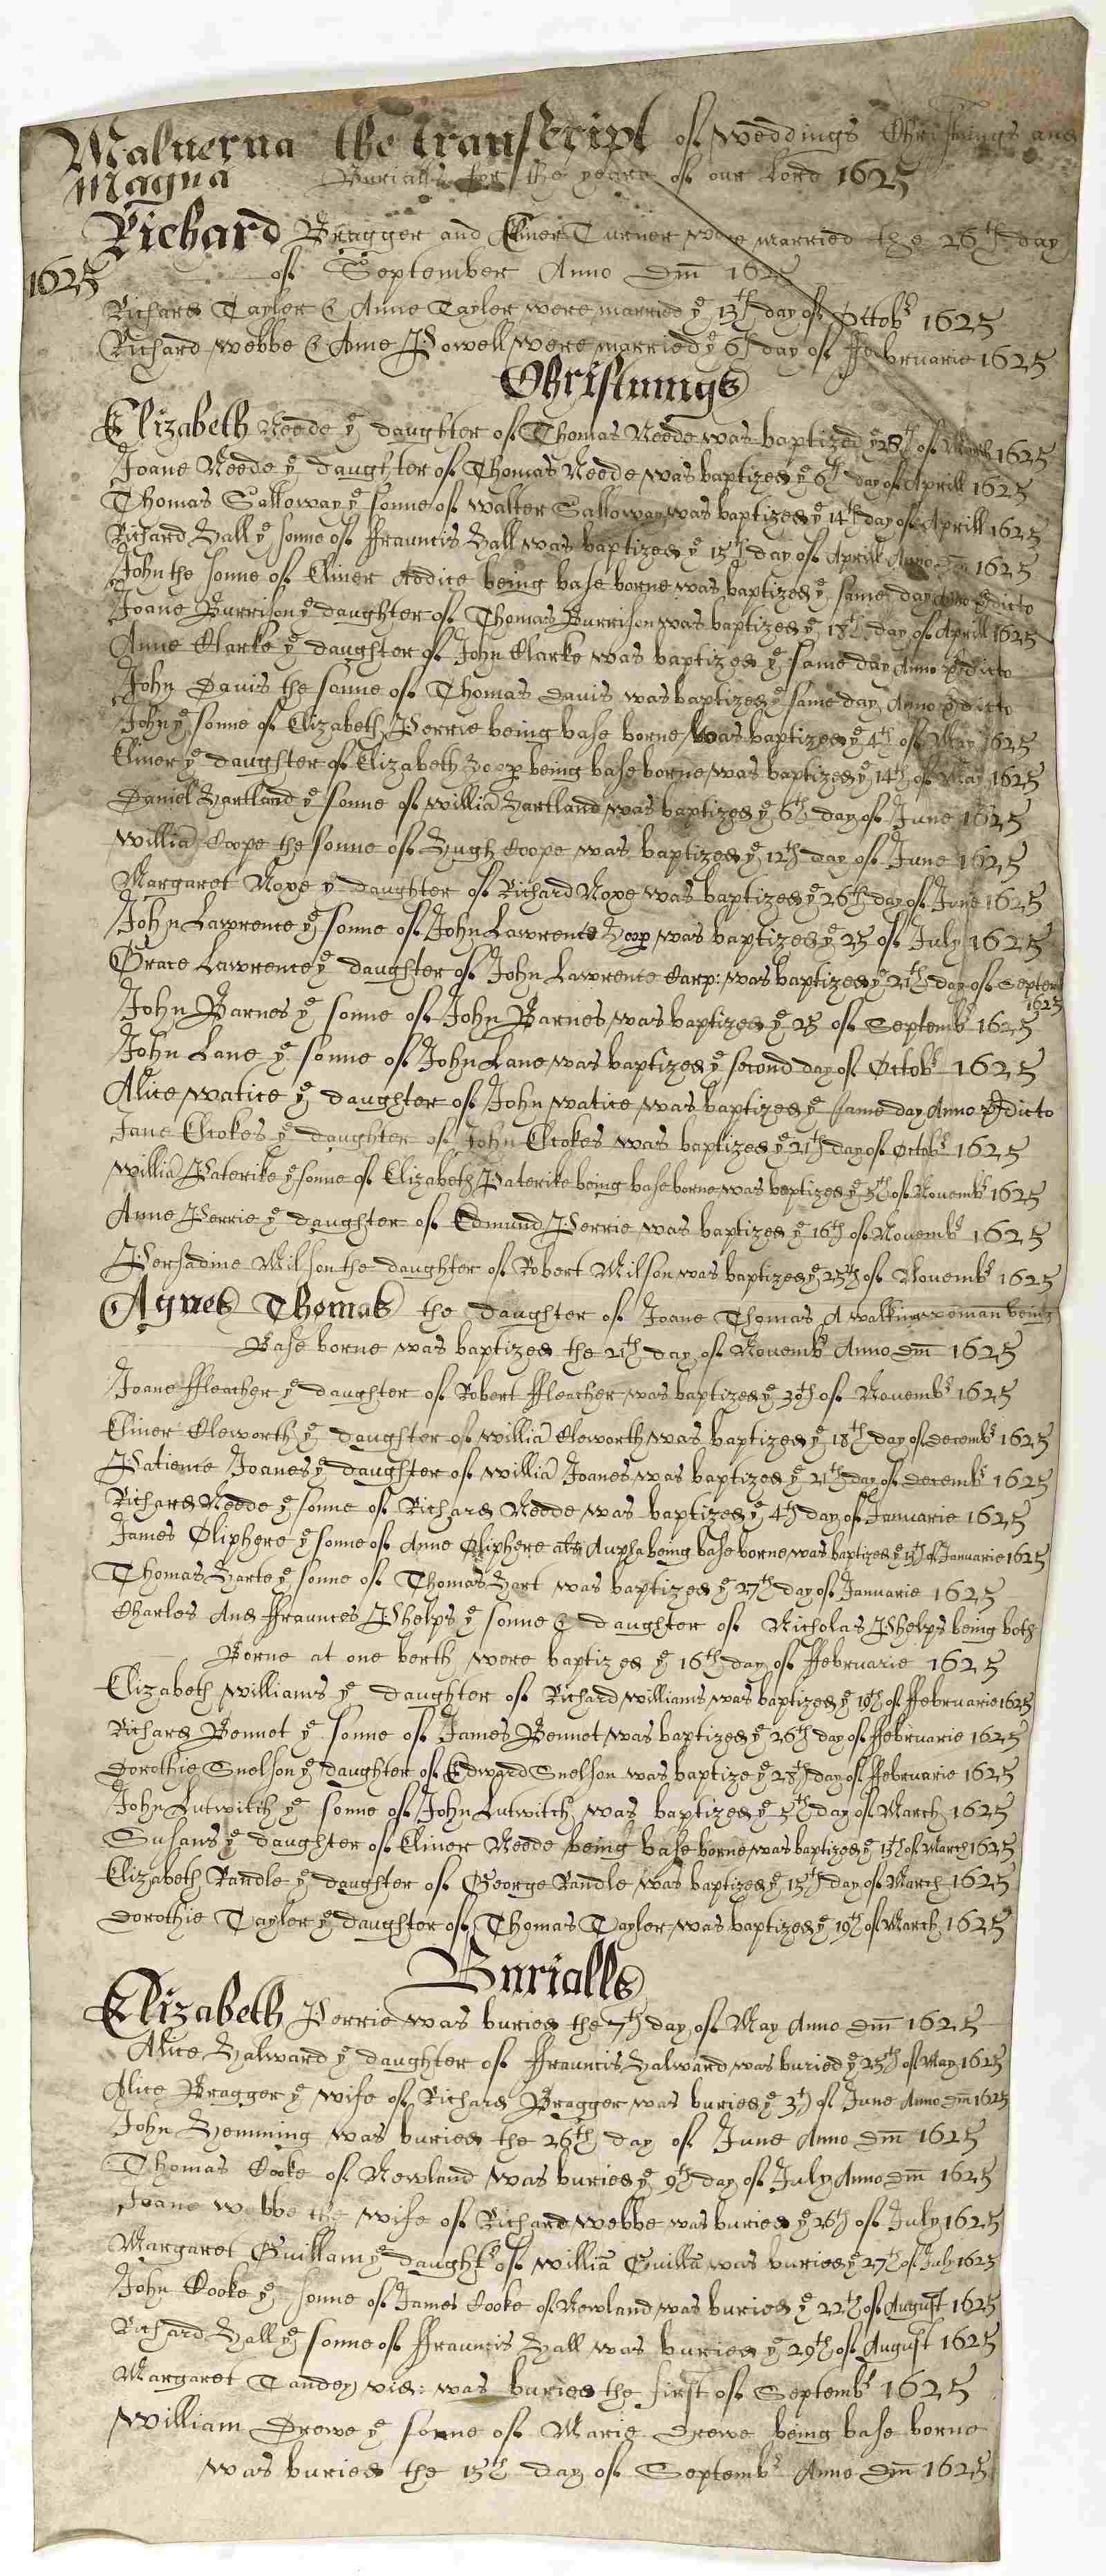 Maluerna the transcript of weddings Christnings and
Magna Burialls for the yeare of our Lord 1625
Richard Bragger and Elinor Turner were married the 26th day
1625 of September Anno Dm̄ 1625
Richard Tayler & Anne Tayler were married ye 13th day of Octobr 1625
Richard Webbe & Anne Powell were married ye 6th day of ffebruarie 1625
Christnings
Elizabeth Neede ye daughter of Thomas Neede was baptized ye 28th of March 1625
Joane Neede ye daughter of Thomas Neede was baptized ye 6th day of Aprill 1625
Thomas Salloway ye sonne of Walter Salloway was baptized ye 14th day of Aprill 1625
Richard Hall ye sonne of ffrauncis Hall was baptized ye 15th day of Aprill Anno Dm̄ 1625
John the sonne of Elinor Addice being base borne was baptized ye same day Anno p̄dicto
Joane Burrison ye daughter of Thomas Burrison was baptized ye 18th day of Aprill 1625
Anne Clarke ye daughter of John Clarke was baptized ye same day Anno p̄dicto
John Dauis the sonne of Thomas Dauis was baptized ye same day Anno p̄dicto
John ye sonne of Elizabeth Perrie being base borne was baptized ye 4th of May 1625
Elinor ye daughter of Elizabeth being base borne was baptized ye 14th of May 1625
Daniel Hartland ye sonne of Williā Hartland was baptized ye 6th day of June 1625
Williā Coope the sonne of Hugh Coope was baptized ye 12th day of June 1625
Margaret Noxe ye daughter of Richard Noxe was baptized ye 26th day of June 1625
John Lawrence ye sonne of John Lawrence was baptized ye 25 of July 1625
Grace Lawrence ye daughter of John Lawrence Carp: was baptized ye 21th day of Septem
1625
John Barnes ye sonne of John Barnes was baptized ye 25 of Septembr 1625
John Lane ye sonne of John Lane was baptized ye second day of Octobr 1625
Alice Watice ye daughter of John Watice was baptized ye same day Anno p̄dicto
Jane Ecokes ye daughter of John Ecokes was baptized ye 21th day of Octobr 1625
Williā Paterike ye sonne of Elizabeth Paterike being base borne was baptized ye 5th of Nouembr 1625
Anne Perrie ye daughter of Edmund Perrie was baptized ye 16th of Nouembr 1625
Persadine Milson the daughter of Robert Milson was baptized ye 25th of Nouembr 1625
Agnes Thomas the daughter of Joane Thomas A walking woman being
Base borne was baptized the 21th day of Nouembr Anno Dm̄ 1625
Joane ffleacher ye daughter of Robert ffleacher was baptized ye 30th of Nouembr 1625
Elinor Cleworth ye daughter of Williā Cleworth was baptized ye 18th day of Decembr 1625
Patience Joanes ye daughter of Williā Joanes was baptized ye 21th day of Decembr 1625
Richard Neede ye sonne of Richard Neede was baptized ye 4th day of Januarie 1625
James Oliphere ye sonne of Anne Oliphere als being base borne was baptized ye 13th of Januarie 1625
Thomas Harte ye sonne of Thomas Hart was baptized ye 27th day of Januarie 1625
Charles And ffraunces Phelps ye sonne & daughter of Nicholas Phelps being both
Borne at one berth were baptized ye 16th day of ffebruarie 1625
Elizabeth Williams ye daughter of Richard Williams was baptized ye 19th of ffebruarie 1625
Richard Bennet ye sonne of James Bennet was baptized ye 26th day of ffebruarie 1625
Dorothie Snelson ye daughter of Edward Snelson was baptize ye 28th day of ffebruarie 1625
John Lutwitch ye sonne of John Lutwitch was baptized ye 5th day of March 1625
Susans ye daughter of Elinor Neede being base borne was baptized ye 13th of March 1625
Elizabeth Randle ye daughter of George Randle was baptized ye 15th day of March 1625
Dorothie Tayler ye daughter of Thomas Tayler was baptized ye 19th of March 1625
Burialls
Elizabeth Perrie was buried the 7th day of May Anno Dm̄ 1625
Alice Halward ye daughter of ffrauncis Halward was buried ye 25th of May 1625
Alice Bragger ye wife of Richard Bragger was buried ye 3th of June Anno Dm̄ 1625
John Hemming was buried the 26th day of June Anno Dm̄ 1625
Thomas Cooke of Newland was buried ye 9th day of July Anno Dm̄ 1625
Joane Webbe the wife of Richard Webbe was buried ye 26th of July 1625
Margaret Guillam ye daughtr of Williā Guillā was buried ye 27th of July 1625
John Cooke ye sonne of James Cooke of Newland was buried ye 22th of August 1625
Richard Hall ye sonne of ffrauncis Hall was buried ye 29th of August 1625
Margaret Tandey vid: was buried the first of Septembr 1625
William Drewe ye sonne of Marie Drewe being base borne
was buried the 15th day of Septembr Anno Dm̄ 1625